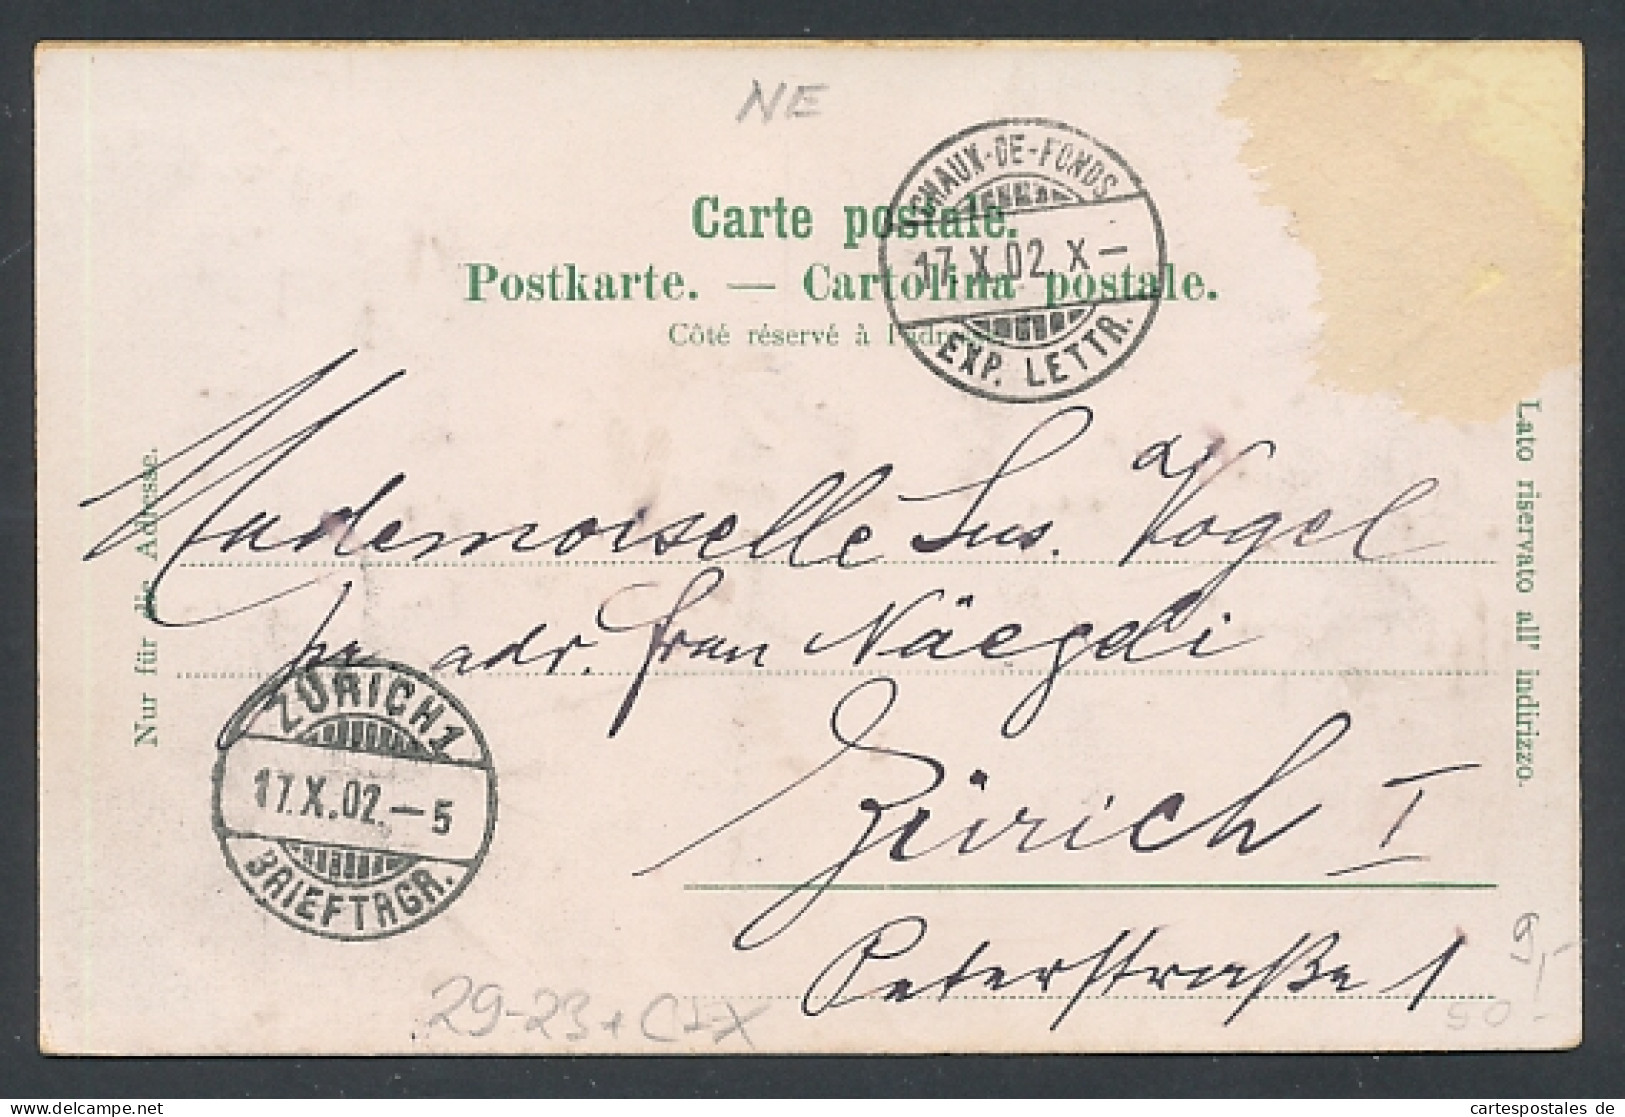 NE
CHAUX-DE-FONDS
17.X.02.X–
EXP. LETTR.
Carte postale.
Postkarte. — Cartolina postale.
Côté réservé à l'adr
Nur für die Adresse.
Lato riservato all' indirizzo.
Mademoiselle Sus. Vogel
pr. adr. frau Näegeli
Zürich I
Peterstraße 1
ZÜRICH 1
17.X.02.–5
BRIEFTRGR.
29-23+C
9,-
50-
cartespostales de